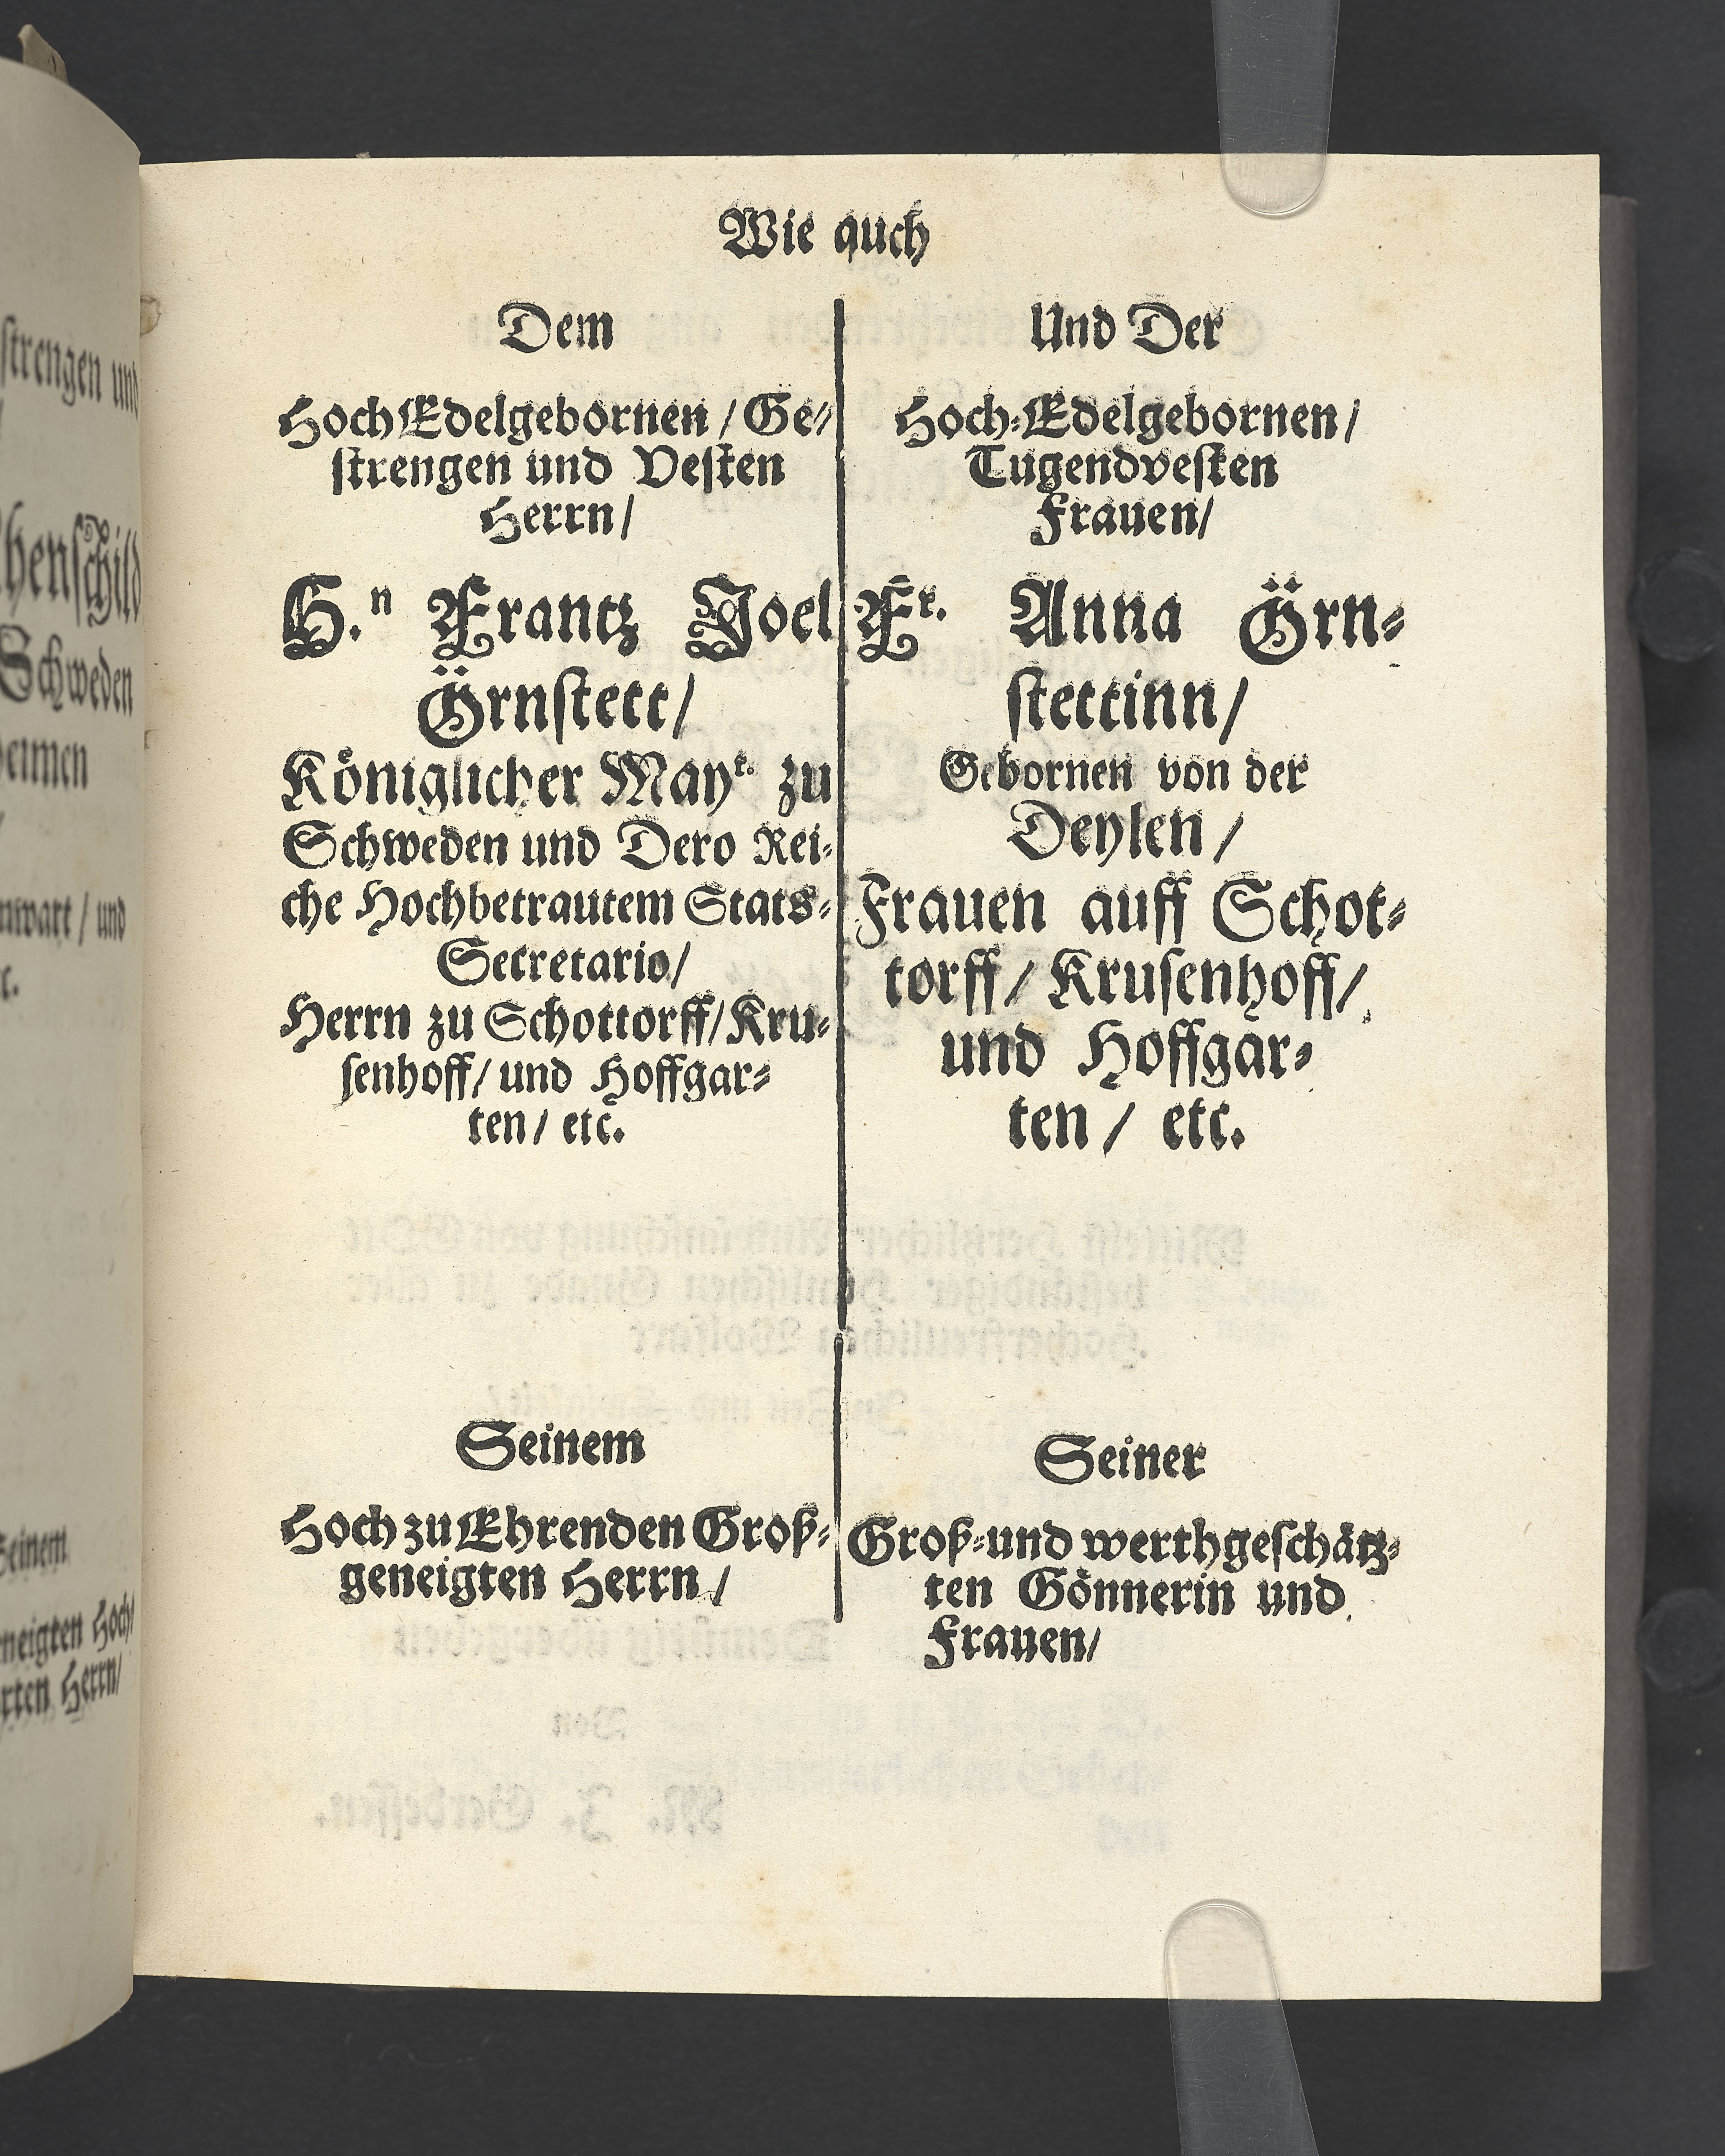 Wie auch
Dem
HochEdelgebornen / Ge⸗
ſtrengen und Veſten
Herrn/
H.ⁿ Frantz Joel
Örnſtett/
Königlicher Mayᵗ. zu
Schweden und Dero Rei⸗
che Hochbetrautem Stats⸗
Secretario/
Herrn zu Schottorff/Kru⸗
ſenhoff/ und Hoffgar⸗
ten/ etc.
Seinem
Hoch zu Ehrenden Groß⸗
geneigten Herrn/
Und Der
Hoch⸗Edelgebornen/
Tugendveſten
Frauen/
Fr. Anna Örn⸗
ſtettinn/
Gebornen von der
Deylen/
Frauen auff Schot⸗
torff/ Kruſenhoff/
und Hoffgar⸗
ten/ etc.
Seiner
Groß⸗und werthgeſchätz⸗
ten Gönnerin und
Frauen/
ſtrengen und
Schweden
und
Seinem
Herrn/